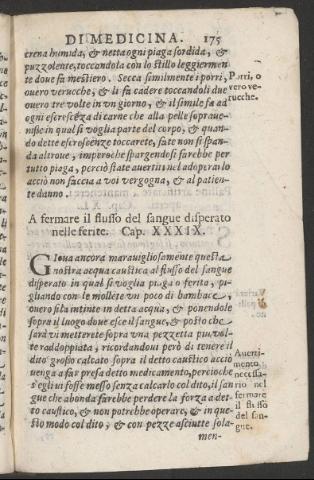 DI MEDICINA. 175
crena humida, & netta ogni piaga sordida, &
puzzolente, toccandola con lo stillo leggiermen
te doue fa mestiero. Secca similmente i porri,
ouero verucche, & li fa cadere toccandoli due
ouero tre volte in vn giorno, & il simile fa ad
ogni escrescēza di carne che alla pelle sopraue-
nisse in qual si voglia parte del corpo, & quan-
do dette escrescenze toccarete, fate non si span-
da altroue, imperoche spargendosi farebbe per
tutto piaga, perciò state auertiti nel adoperarlo
acciò non faccia a voi vergogna, & al patien-
te danno.
Porri, o
vero ve-
rucche.
A fermare il flusso del sangue disperato
nelle ferite. Cap. XXXIX.
Gioua ancora marauigliosamente questa
nostra acqua caustica al flusso del sangue
disperato in qual si voglia piaga o ferita, pi-
gliando con le mollete vn poco di bambace,
ouero fila intinte in detta acqua, & ponendole
sopra il luogo doue esce il sangue, & posto che
sarà vi metterete sopra vna pezzetta piu vol-
te raddoppiata, ricordandoui però di tenere il
dito grosso calcato sopra il detto caustico acciò
uenga a far presa detto medicamento, percioche
s'egli ui fosse messo senza calcarlo col dito, il san
gue che abonda farebbe perdere la forza a det-
to caustico, & non potrebbe operare, & in que-
sto modo col dito, & con pezze asciutte sola-
men-
Auerti-
mento
necessa-
rio nel
fermare
il flusso
del san-
gue.